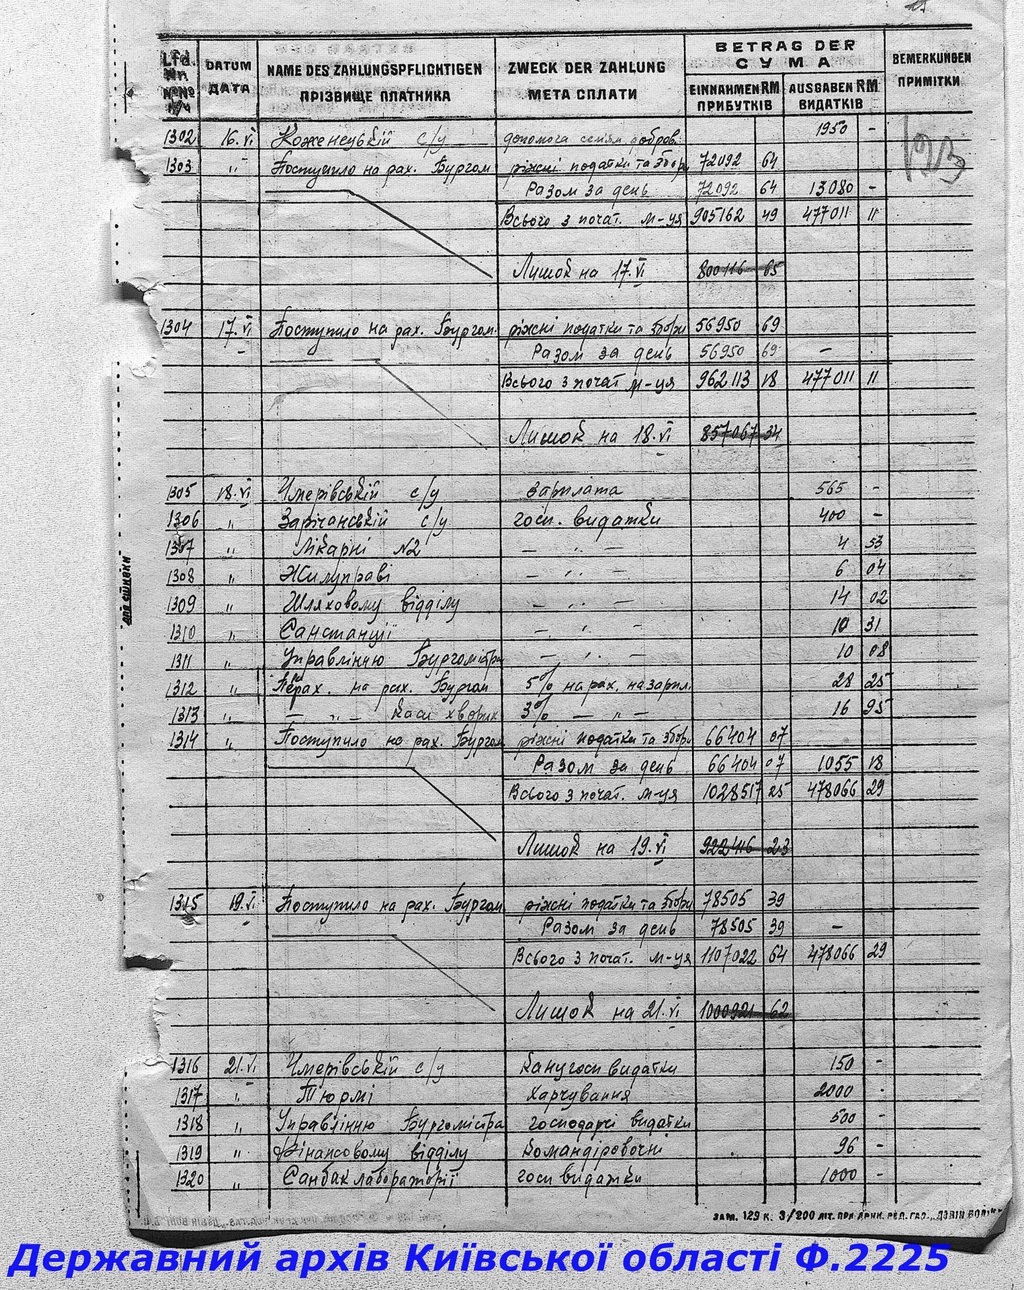 Lfd. Nr. №№ п/ч DATUM ДАТА NAME DES ZAHLUNGSPFLICHTIGEN ПРІЗВИЩЕ ПЛАТНИКА ZWECK DER ZAHLUNG МЕТА СПЛАТИ BETRAG DER СУМА BEMERKUNGEN ПРИМІТКИ
EINNAHMEN RM ПРИБУТКІВ AUSGABEN RM ВИДАТКІВ
1302 16.VI с/у допомога сем'ям добров. 1950 -
1303 " Поступило на рах. Бургом ріжні податки та збори 72092 64
Разом за день 72092 64 13080 -
Всього з почат. м-ця 905162 49 477011 11
Лишок на 17.VI 800116 65
1304 17.VI Поступило на рах. Бургом. ріжні податки та збори 56950 69
Разом за день 56950 69 -
Всього з почат м-ця 962113 18 477011 11
Лишок на 18.VI 857067 34
1305 18.VI Чмерівській с/у зарплата 565 -
1306 " Зарічанській с/у госп. видатки 400 -
1307 " Лікарні №2 — " — 4 53
1308 " Жилуправі — " — 6 04
1309 " Шляховому відділу — " — 14 02
1310 " Санстанції — " — 10 31
1311 " Управлінню Бургомістра — " — 10 08
1312 " Перах. на рах. Бургом 5% на рах. на зарпл. 28 25
1313 " — " — Каси хворих 3% — " — 16 95
1314 " Поступило на рах. Бургом ріжні податки та збори 66404 07
Разом за день 66404 07 1055 18
Всього з почат. м-ця 1028517 25 478066 29
Лишок на 19.VI 922416 23
1315 19.VI Поступило на рах. Бургом ріжні податки та збори 78505 39
Разом за день 78505 39 -
Всього з почат. м-ця 1107022 64 478066 29
Лишок на 21.VI 1000921 62
1316 21.VI Чмерівській с/у канцгосп видатки 150 -
1317 " Тюрмі харчування 2000 -
1318 " Управлінню Бургомістра господарчі видатки 500 -
1319 " Фінансовому відділу командіровочні 96 -
1320 " Санбаклабораторії госп видатки 1000 -
ЗАМ. 129 К. 3/200 ЛІТ. ПРИ ДРУК. РЕД. ГАЗ. „ДЗВІН ВОЛІ"
Державний архів Київської області Ф.2225